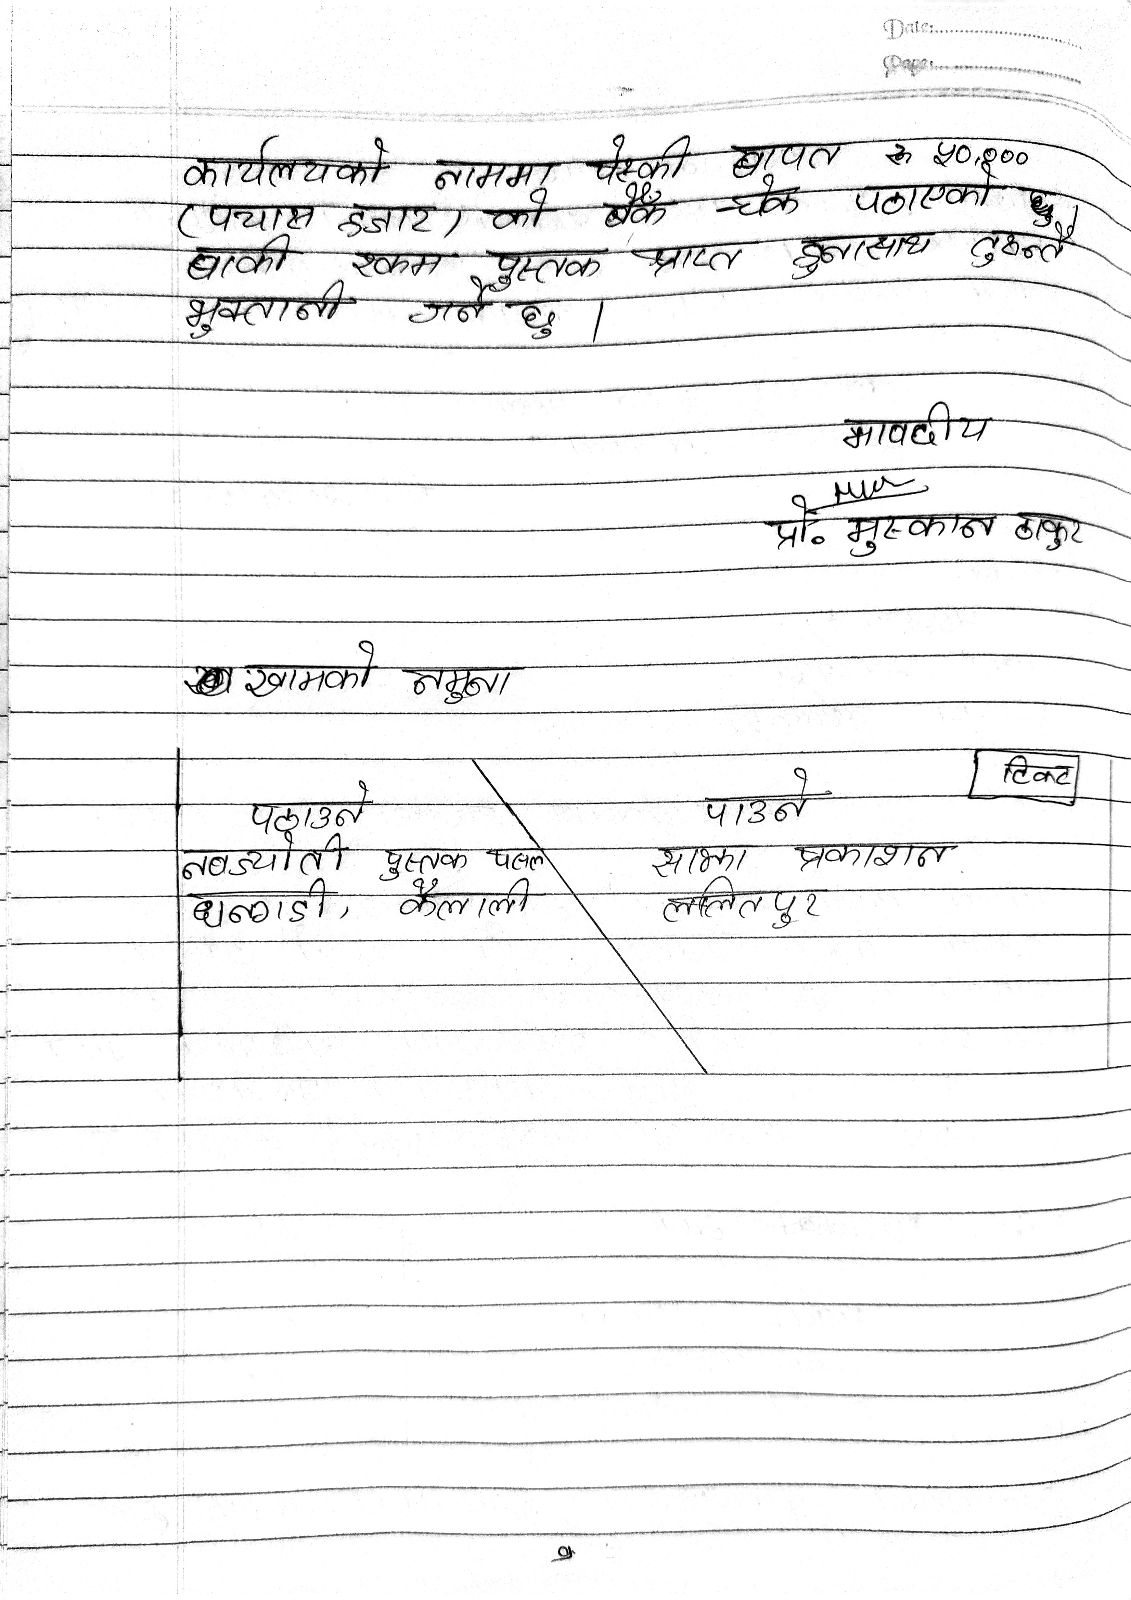 Date:
Page:
कार्यलयको नाममा पेस्की बापत रू ५०,०००
(पचास हजार) को बैंक चेक पठाएको छु।
बाकी रकम पुस्तक प्राप्त हुनासाथ तुरुन्तै
भुक्तानी गर्ने छु ।
भावदीय
प्रो. मुस्कान ठाकुर
खामको नमुना
टिकट
पठाउने
नवज्योती पुस्तक पसल
धनगडी, कैलाली
पाउने
साझा प्रकाशन
ललितपुर